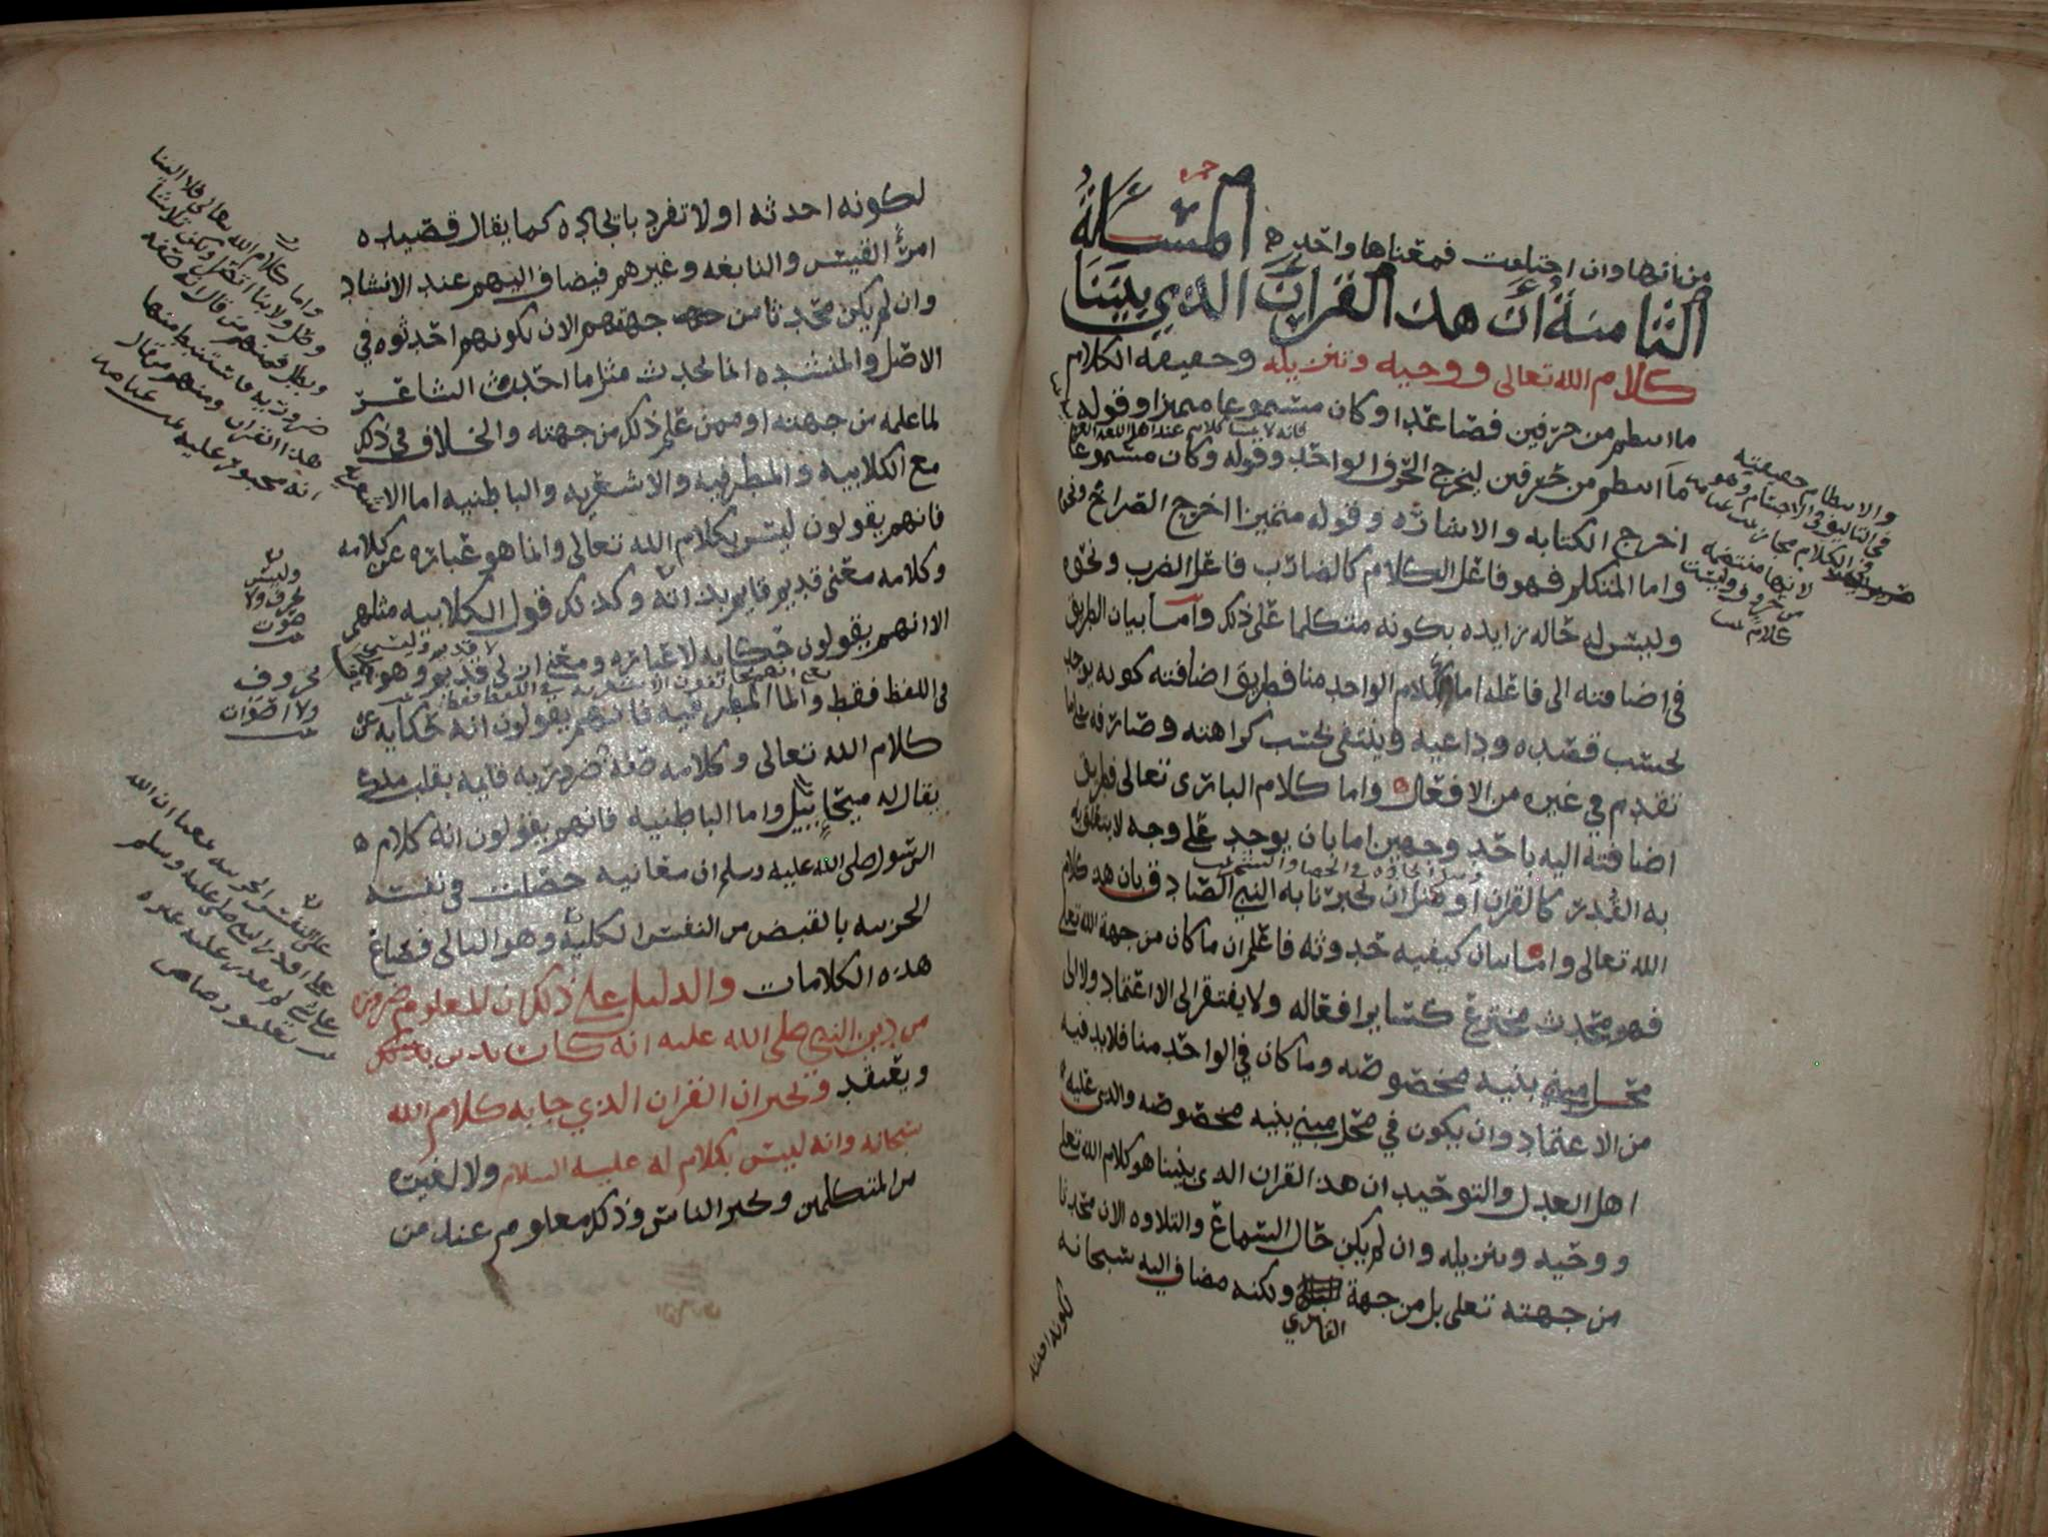 من نائها وان اختلفت فمعناها واحد ه المسألة
الثامنة أن هذ القرآن الذي بيننا
كلام الله تعالى ووحيه وتنزيله وحقيقه الكلام
ما انتظم من حرفين فصاعدا وكان مسموعا مميزا وقوله
فانه لا يسما كلام عند اهل اللغه
ما انتظم من حرفين ليخرج الحرف الواحد وقوله وكان مسموعا
اخرج الكتابه والاشاره وقوله متميزا اخرج الصراخ ونحوه
واما المتكلم فهو فاعل الكلام كالضارب فاعل الضرب ونحوه
وليس له حاله زايده بكونه متكلما على ذلك وأما بيان الطريق
في إضافته الى فاعله اما الكلام الواحد منا فطريق اضافته كونه يوجد
بحسب قصده وداعيه وينتفى بحسب كراهته وصارفه على ما
تقدم في غيره من الافعال واما كلام البارى تعالى فطريق
اضافته اليه باحد وجهين اما بان يوجد على وجه لا يتعلق به
به القدر كالقران او مثل ان يخبرنا به النبي الصادق بان هذ كلام
الله تعالى واما بيان كيفيه حدوثه فاعلم ان ما كان من جهة الله تعلى
فهو محدث مخترع كساير افعاله ولا يفتقر الى الاعتماد ولا الى
محل مبني بنيه مخصوصه وما كان في الواحد منا فلابد فيه
من الاعتماد وان يكون في محل مبني بنيه مخصوصه والذي عليه
اهل العدل والتوحيد ان هذ القران الذى بيننا هو كلام الله تعلى
ووحيه وتنزيله وان لم يكن حال السماع والتلاوه الان محدثا
من جهته تعلى بل من جهة ولكنه مضاف اليه سبحانه
القاري
لكونه احدثه
والانتظام حقيقته
في التاليف في الاجسام وهو
في الكلام مجاز
لانها منتظمه
من حروف وليست
لكونه احدثه اولا تفرد بايجاده كما يقال قصيده
امرئ القيس والنابغه وغيرهم فيضاف اليهم عند الانشاد
وان لم يكن محدثا من جهتهم الان لكونهم احدثوه في
الاصل والمنشده انما يحدث مثل ما احدث الشاعر
لما علمه من جهته او ممن علم ذلك من جهته والخلاف في ذلك
مع الكلابيه والمطرفيه والاشعريه والباطنيه اما الاشعريه
فانهم يقولون ليس بكلام الله تعالى وانما هو عباره عن كلامه
وكلامه معنى قديم قايم بذاته وكذلك قول الكلابيه مثلهم
الا انهم يقولون حكايه لا عباره ومعنى ازلي لا قديم وهو
في اللفظ فقط واما المطرفيه فانهم يقولون انه حكايه عن
كلام الله تعالى وكلامه صفة ضروريه قايمه بقلب ملك
يقال له ميخاييل واما الباطنيه فانهم يقولون انه كلام ه
الرسول صلى الله عليه وسلم ان معانيه حصلت في نفسه
الجزييه بالقبض من النفس الكلية وهو التالى فصاغ
هذه الكلامات والدليل على ذلك ان المعلوم ضرورة
من دين النبي صلى الله عليه انه كان يدين
ويعتقد ويخبر ان القران الذي جا به كلام الله
سبحانه وانه ليس بكلام له عليه السلام ولا لغيره
من المتكلمين ويخبر الناس وذلك معلوم عند من
واما كلام الله تعالى
هذا القران ومنهم من قال
وليس
بحرف ولا
صوت
بحروف
ولا اصوات